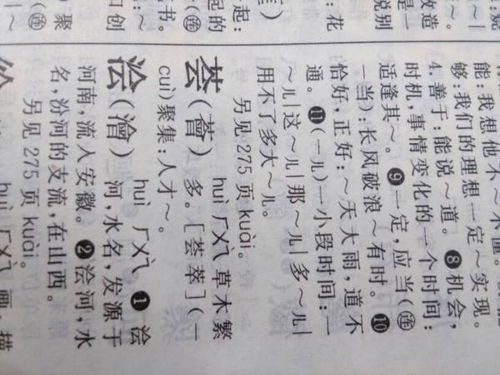 能:我想他不
够:我们的理想一定～实现。
4.善于:能说～道。❽机会,
时机,事情变化的一个时间:
适逢其～。❾一定,应当(连
—当):长风破浪～有时。❿
恰好,正好:～天大雨,道不
通。⓫(—儿)一小段时间:一
～儿|这～儿|那～儿|多～儿|
用不了多大～儿。
另见275页 kuài.
荟(薈) huì ㄏㄨㄟˋ 草木繁
多。[荟萃](—
cuì)聚集:人才～。
浍(澮) huì ㄏㄨㄟˋ ❶浍
河,水名,发源于
河南,流入安徽。❷浍河,水
名,汾河的支流,在山西。
另见275页 kuài.
huì ㄏㄨㄟˋ 画,描